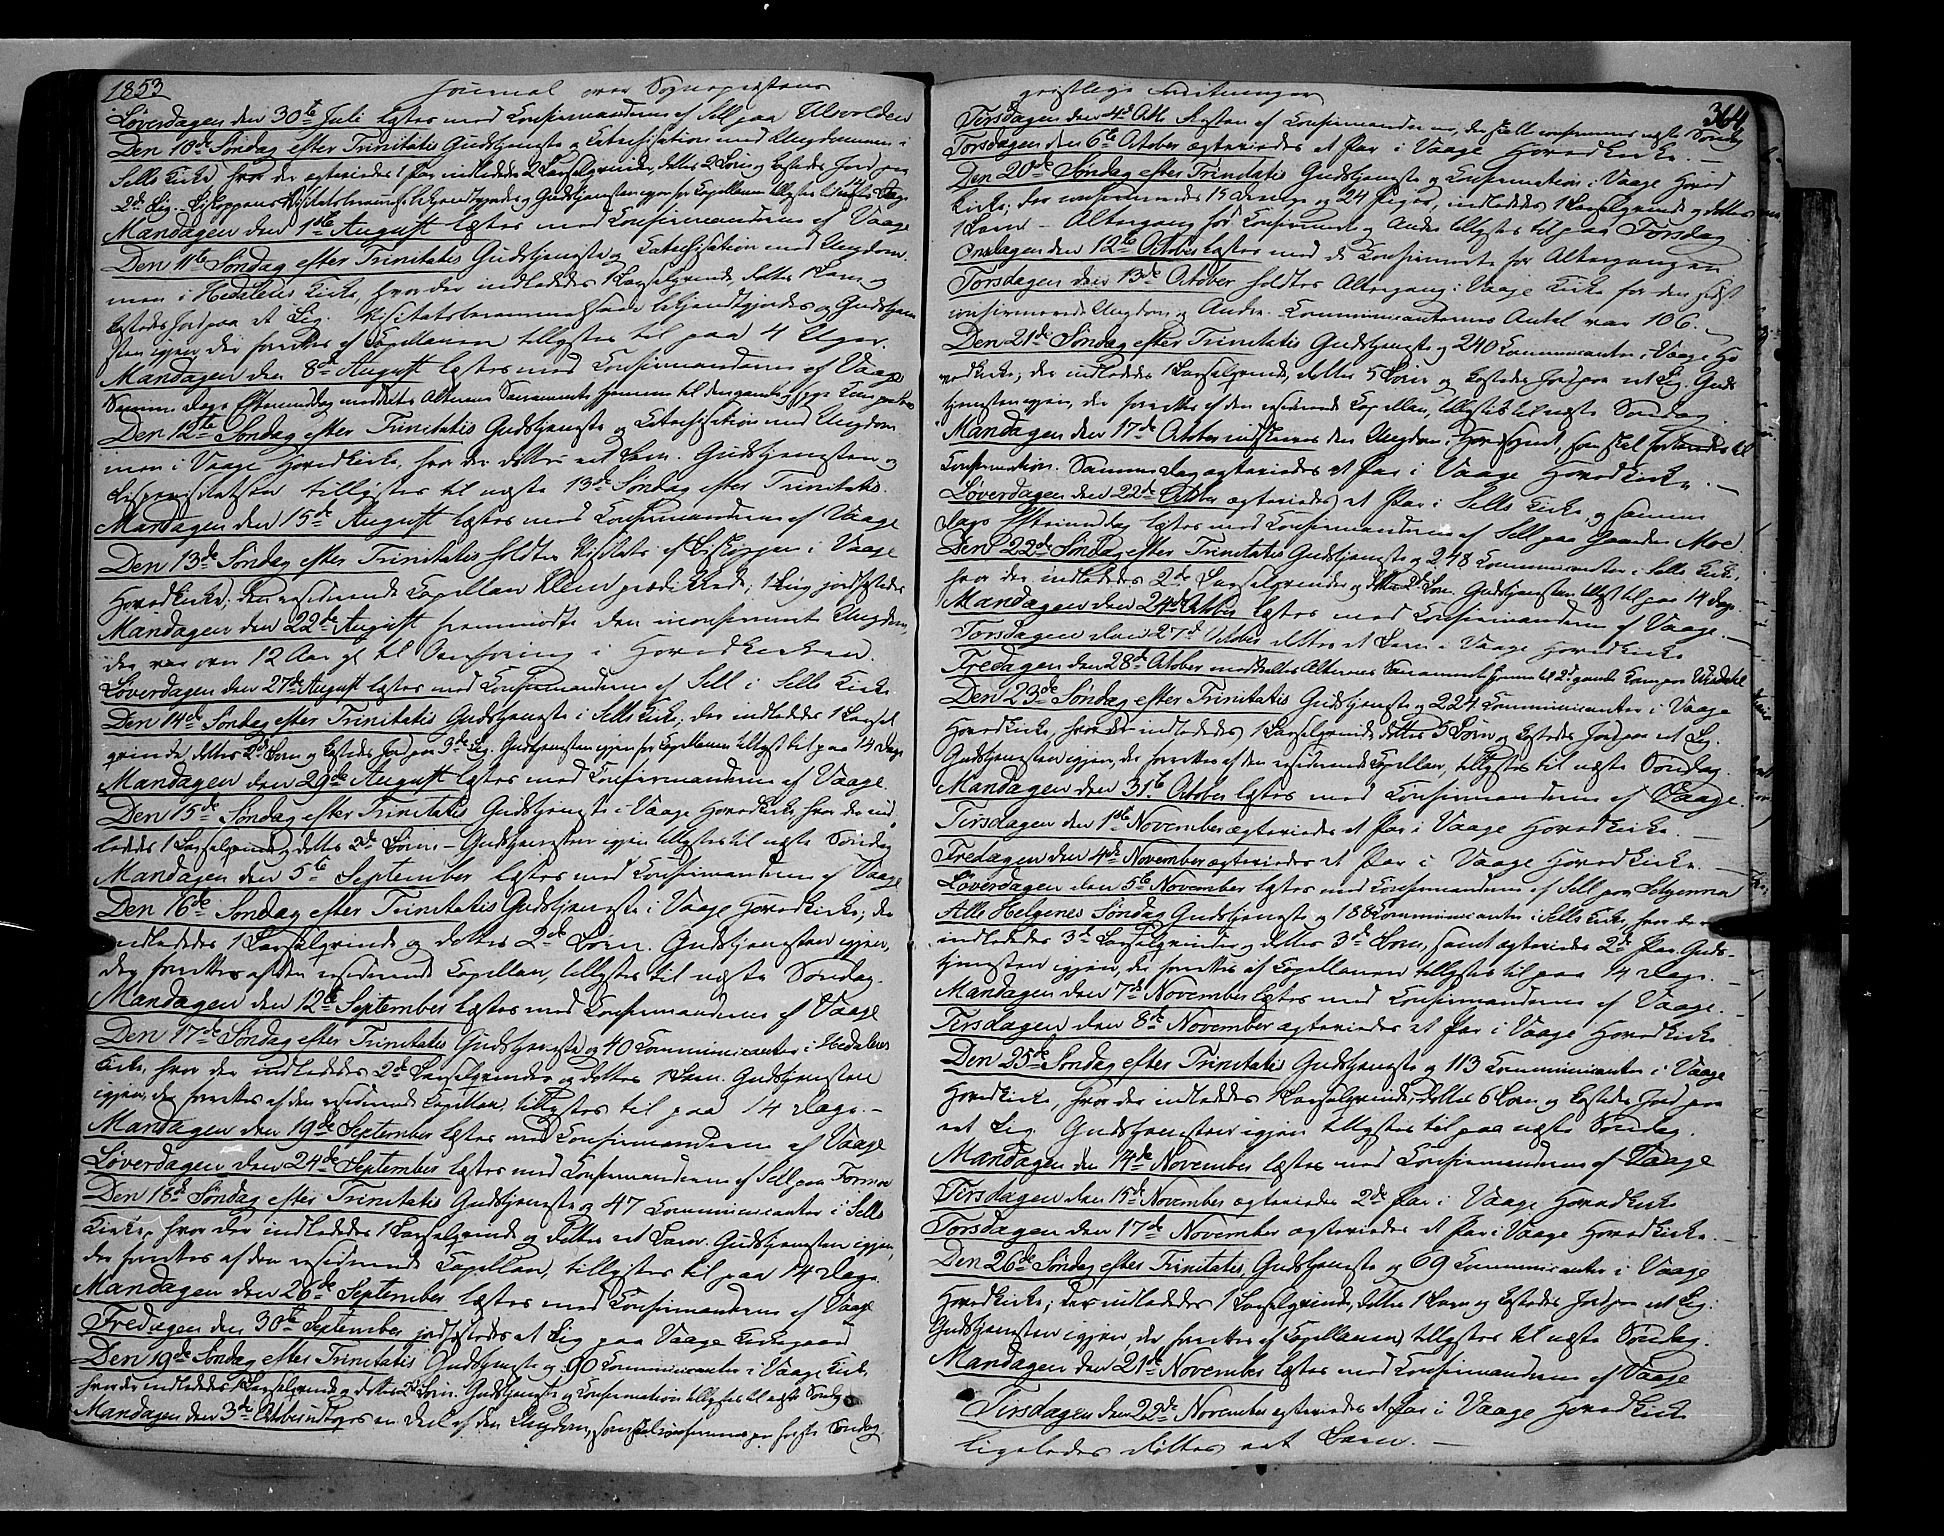 1853 Journal over Sognepræstens
Løverdagen den 30te Juli læstes med Confirmanderne af Sell paa Ulsvolden
Den 10de Søndag efter Trinitatis Gudstjeneste og Catechisation med Ungdommen i
Sells Kirke hvor der ægteviedes 1 Par, indlededes 2 Barselqvinder, døbtes 2 Børn og kastedes Jord paa
2de Lig. Biskoppens Visitatsbrev bekjendtgjordes og Gudstjenesten igjen for Capellanen tillystes til 14 Dage
Mandagen den 1ste August læstes med Confirmanderne af Vaage
Den 11te Søndag efter Trinitatis Gudstjeneste og Catechisation med Ungdom-
men i Hedalens Kirke, hvor der indlededes 1 Barselqvinde, døbtes 1 Barn og
kastedes Jord paa et Lig. Visitatsbrevet bekjendtgjordes og Gudstjene-
sten igjen, der forrettes af Capellanen tillystes til paa 4 Uger.
Mandagen den 8de August læstes med Confirmanderne af Vaage
Samme Dags Eftermiddag meddeltes Alterens Sacramente hjemme til den gamle syge
Den 12te Søndag efter Trinitatis Gudstjeneste og Catechisation med Ungdom
men i Vaage Hovedkirke, hvor der døbtes eet Barn. Gudstjenesten og
Bispevisitatsen tillystes til næste 13de Søndag efter Trinitatis.
Mandagen den 15de August læstes med Confirmanderne af Vaage
Den 13de Søndag efter Trinitatis holdtes Visitats af Biskoppen i Vaage
Hovedkirke. Den residerende Capellan Kleen prædikede; 1 Lig jordfæstedes
Mandagen den 22de August fremmødte den uconfirmerte Ungdom,
der var over 12 Aar gl til Overhøring i Hovedkirken.
Løverdagen den 27de August læstes med Confirmanderne af Sell i Sells Kirke
Den 14de Søndag efter Trinitatis Gudstjeneste i Sells Kirke; der indlededes 1 Barsel
qvinde, døbtes 2de Børn og kastedes Jord paa 3de Lig. Gudstjenesten igjen for Capellanen tillyst til paa 14 Dage
Mandagen den 29de August læstes med Confirmanderne af Vaage.
Den 15de Søndag efter Trinitatis Gudstjeneste i Vaage Hovedkirke hvor der ind-
lededes 1 Barselqvinde og døbtes 2de Børn. – Gudstjenesten igjen tillystes til næste Søndag
Mandagen den 5te September læstes med Confirmanderne af Vaage
Den 16de Søndag efter Trinitatis Gudstjeneste i Vaage Hovedkirke; der
indlededes 1 Barselqvinde og døbtes 2de Børn. Gudstjenesten igjen,
der forrettes af den residerende Capellan, tillystes til næste Søndag.
Mandagen den 12te September læstes med Confirmanderne af Vaage
Den 17de Søndag efter Trinitatis Gudstjeneste og 40 Communicanter i Hedalens
Kirke, hvor der indlededes 2de Barselqvinder og døbtes 1 Barn. Gudstjenesten
igjen, der forrettes af den residerende Capellan, tillystes til paa 14 Dage. –
Mandagen den 19de September læstes med Confirmanderne af Vaage
Løverdagen den 24de September læstes med Confirmanderne af Sell paa Formoe
Den 18de Søndag efter Trinitatis Gudstjeneste og 47 Communicanter i Sells
Kirke, hvor der indlededes 1 Barselqvinde og døbtes eet Barn. Gudstjenesten igjen,
der forrettes af den residerende Capellan, tillystes til paa 14 Dage.
Mandagen den 26de September læstes med Confirmanderne af Vaage
Fredagen den 30te September jordfæstedes et Lig paa Vaage Kirkegaard
Den 19de Søndag efter Trinitatis Gudstjeneste og 90 Communicanter i Vaage Kirke
hvor der indlededes 1 Barselqvinde og døbtes 2de Børn. Gudstjeneste og Confirmation tillystes til næste Søndag
Mandagen den 3de October udtoges en Deel af den Ungdom, som skal confirmeres paa første Søndag.
geistlige Forretninger 364
Torsdagen den 4de Octb Resten af Confirmanderne, der skall confirmeres næste Søndag
Torsdagen den 6te October ægteviedes et Par i Vaage Hovedkirke. –
Den 20de Søndag efter Trinitatis Gudstjeneste og Confirmation i Vaage Hoved
kirke; der confirmeredes 15 Drenge og 24 Piger, indlededes 1 Barselqvinde og døbtes
1 Barn – Altergang for Confirmerte og Andre tillystes til paa Torsdag
Onsdagen den 12te October læstes med de Confirmerte før Altergangen
Torsdagen den 13de October holdtes Altergang i Vaage Kirke for den sidst
confirmerede Ungdom og Andre. Communicanternes Antal var 106. –
Den 21de Søndag efter Trinitatis Gudstjeneste og 240 Communicanter i Vaage Ho
vedkirke; der indlededes 1 Barselqvinde, døbtes 5 Børn og kastedes Jord paa et Lig. Guds
tjenesten igjen, der forrettes af den residerende Capellan, tillystes til næste Søndag
Mandagen den 17de October indskreves den Ungdom i Hovedsognet, som skal forberedes til
Confirmation. Samme Dag ægteviedes et Par i Vaage Hovedkirke. –
Løverdagen den 22de October ægteviedes et Par i Sells Kirke og samme
Dags Eftermiddag læstes med Confirmanderne af Sell paa Gaarden Moe.
Den 22de Søndag efter Trinitatis Gudstjeneste og 248 Communicanter i Sells Kirke,
hvor der indlededes 2de Barselqvinder og døbtes 2de Børn. Gudstjenesten tillyst til paa 14 Dage.
Mandagen den 24de October læstes med Confirmanderne af Vaage. –
Torsdagen den 27de October døbtes et Barn i Vaage Hovedkirke
Fredagen den 28de October meddeeltes Alterens Sacramente hjemme til 2 gamle
Den 23de Søndag efter Trinitatis Gudstjeneste og 224 Communicanter i Vaage
Hovedkirke, hvor der indlededes 1 Barselqvinde, døbtes 5 Børn og kastedes Jord paa et Lig.
Gudstjenesten igjen, der forrettes af den residerende Capellan, tillystes til næste Søndag.
Mandagen den 31te October læstes med Confirmanderne af Vaage.
Tirsdagen den 1ste November ægteviedes et Par i Vaage Hovedkirke. –
Fredagen den 4de November ægteviedes et Par i Vaage Hovedkirke. –
Løverdagen den 5te November læstes med Confirmanderne af Sell paa
Alle Helgenes Søndag Gudstjeneste og 188 Communicanter i Sells Kirke, hvor der
indlededes 3de Barselqvinder og døbtes 3de Børn, samt ægteviedes 2de Par. Guds-
tjenesten igjen, der forrettes af Capellanen tillystes til paa 14 Dage. –
Mandagen den 7de November læstes med Confirmanderne af Vaage. –
Tirsdagen den 8de November ægteviedes et Par i Vaage Hovedkirke
Den 25de Søndag efter Trinitatis Gudstjeneste og 113 Communicanter i Vaage
Hovedkirke, hvor der indlededes 1 Barselqvinde, døbtes 6 Børn og kastedes Jord paa
eet Lig. Gudstjenesten igjen tillystes til paa næste Søndag.
Mandagen den 14de November læstes med Confirmanderne af Vaage
Tirsdagen den 15de November ægteviedes 2de Par i Vaage Hovedkirke
Torsdagen den 17de November ægteviedes et Par i Vaage Hovedkirke. –
Den 26de Søndag efter Trinitatis, Gudstjeneste og 69 Communicanter i Vaage
Hovedkirke; der indlededes 1 Barselqvinde, døbtes 1 Barn og kastedes Jord paa et Lig.
Gudstjenesten igjen, der forrettes af Capellanen, tillystes til næste Søndag.
Mandagen den 21de November læstes med Confirmanderne af Vaage
Tirsdagen den 22de November ægteviedes et Par i Vaage Hovedkirke
ligeledes døbtes eet Barn. –